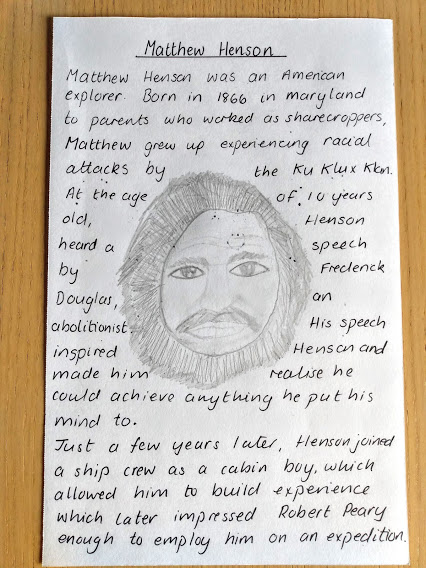 Matthew Henson
Matthew Henson was an American
explorer. Born in 1866 in maryland
to parents who worked as sharecroppers,
Matthew grew up experiencing racial
attacks by the Ku Klux Klan.
At the age of 10 years
old, Henson
heard a speech
by Frederick
Douglas, an
abolitionist. His speech
inspired Henson and
made him realise he
could achieve anything he put his
mind to.
Just a few years later, Henson joined
a ship crew as a cabin boy, which
allowed him to build experience
which later impressed Robert Peary
enough to employ him on an expedition.